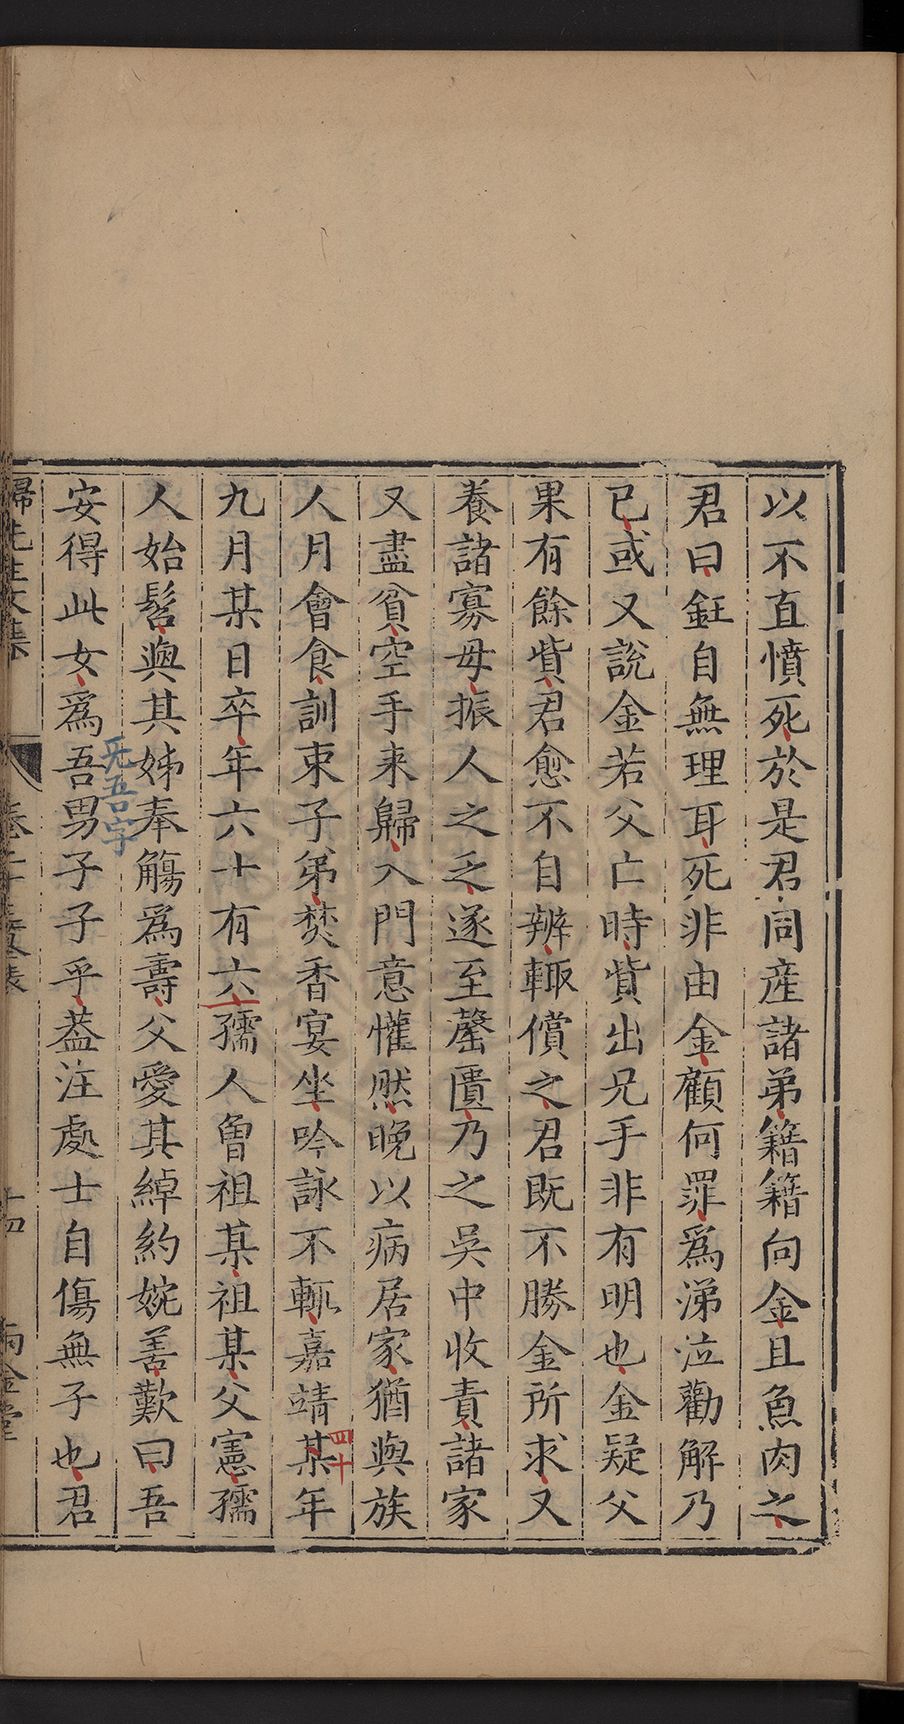 以不直憤死於是君同産諸弟籍籍向金且魚肉之
君曰鉦自無理耳死非由金顧何罪爲涕泣勸解乃
已或又説金若父亡時貲出兄手非有明也金疑父
果有餘貲君愈不自辨輙償之君既不勝金所求又
養諸寡母振人之乏遂至罄匱乃之吳中收責諸家
又盡貧空手來歸入門意懽然晩以病居家猶與族
人月會食訓束子弟焚香宴坐吟詠不輟嘉靖某年
四十
九月某日卒年六十有六孺人魯祖某祖某父憲孺
人始髫與其姊奉觴爲壽父愛其綽約婉善歎曰吾
安得此女爲吾男子子乎葢注處士自傷無子也君
无吾字
歸先生文集
十四